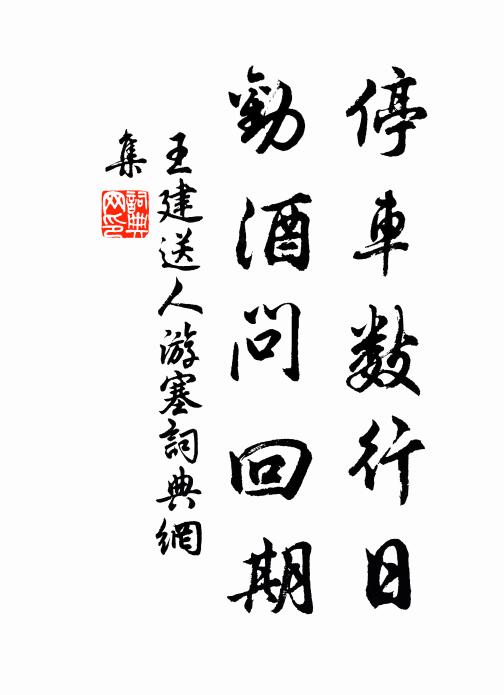 停車數行日
勸酒問回期
王建送人游塞詞典網
集
詞典
网印